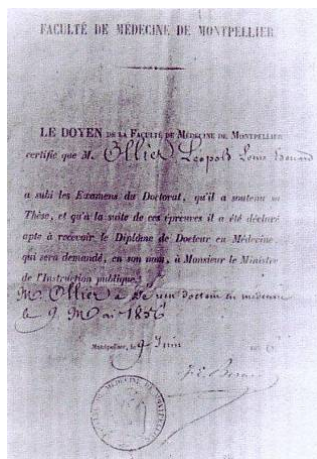 FACULTÉ DE MÉDECINE DE MONTPELLIER
LE DOYEN DE LA FACULTÉ DE MÉDECINE DE MONTPELLIER
certifie que M. Ollier Léopold Louis Edouard
a subi les Examens du Doctorat, qu'il a soutenu sa
Thèse, et qu'à la suite de ces épreuves il a été déclaré
apte à recevoir le Diplôme de Docteur en Médecine,
qui sera demandé, en son nom, à Monsieur le Ministre
de l'Instruction publique.
M. Ollier a été reçu docteur en médecine
le 9 Mai 1856
Montpellier, le 9 Juin